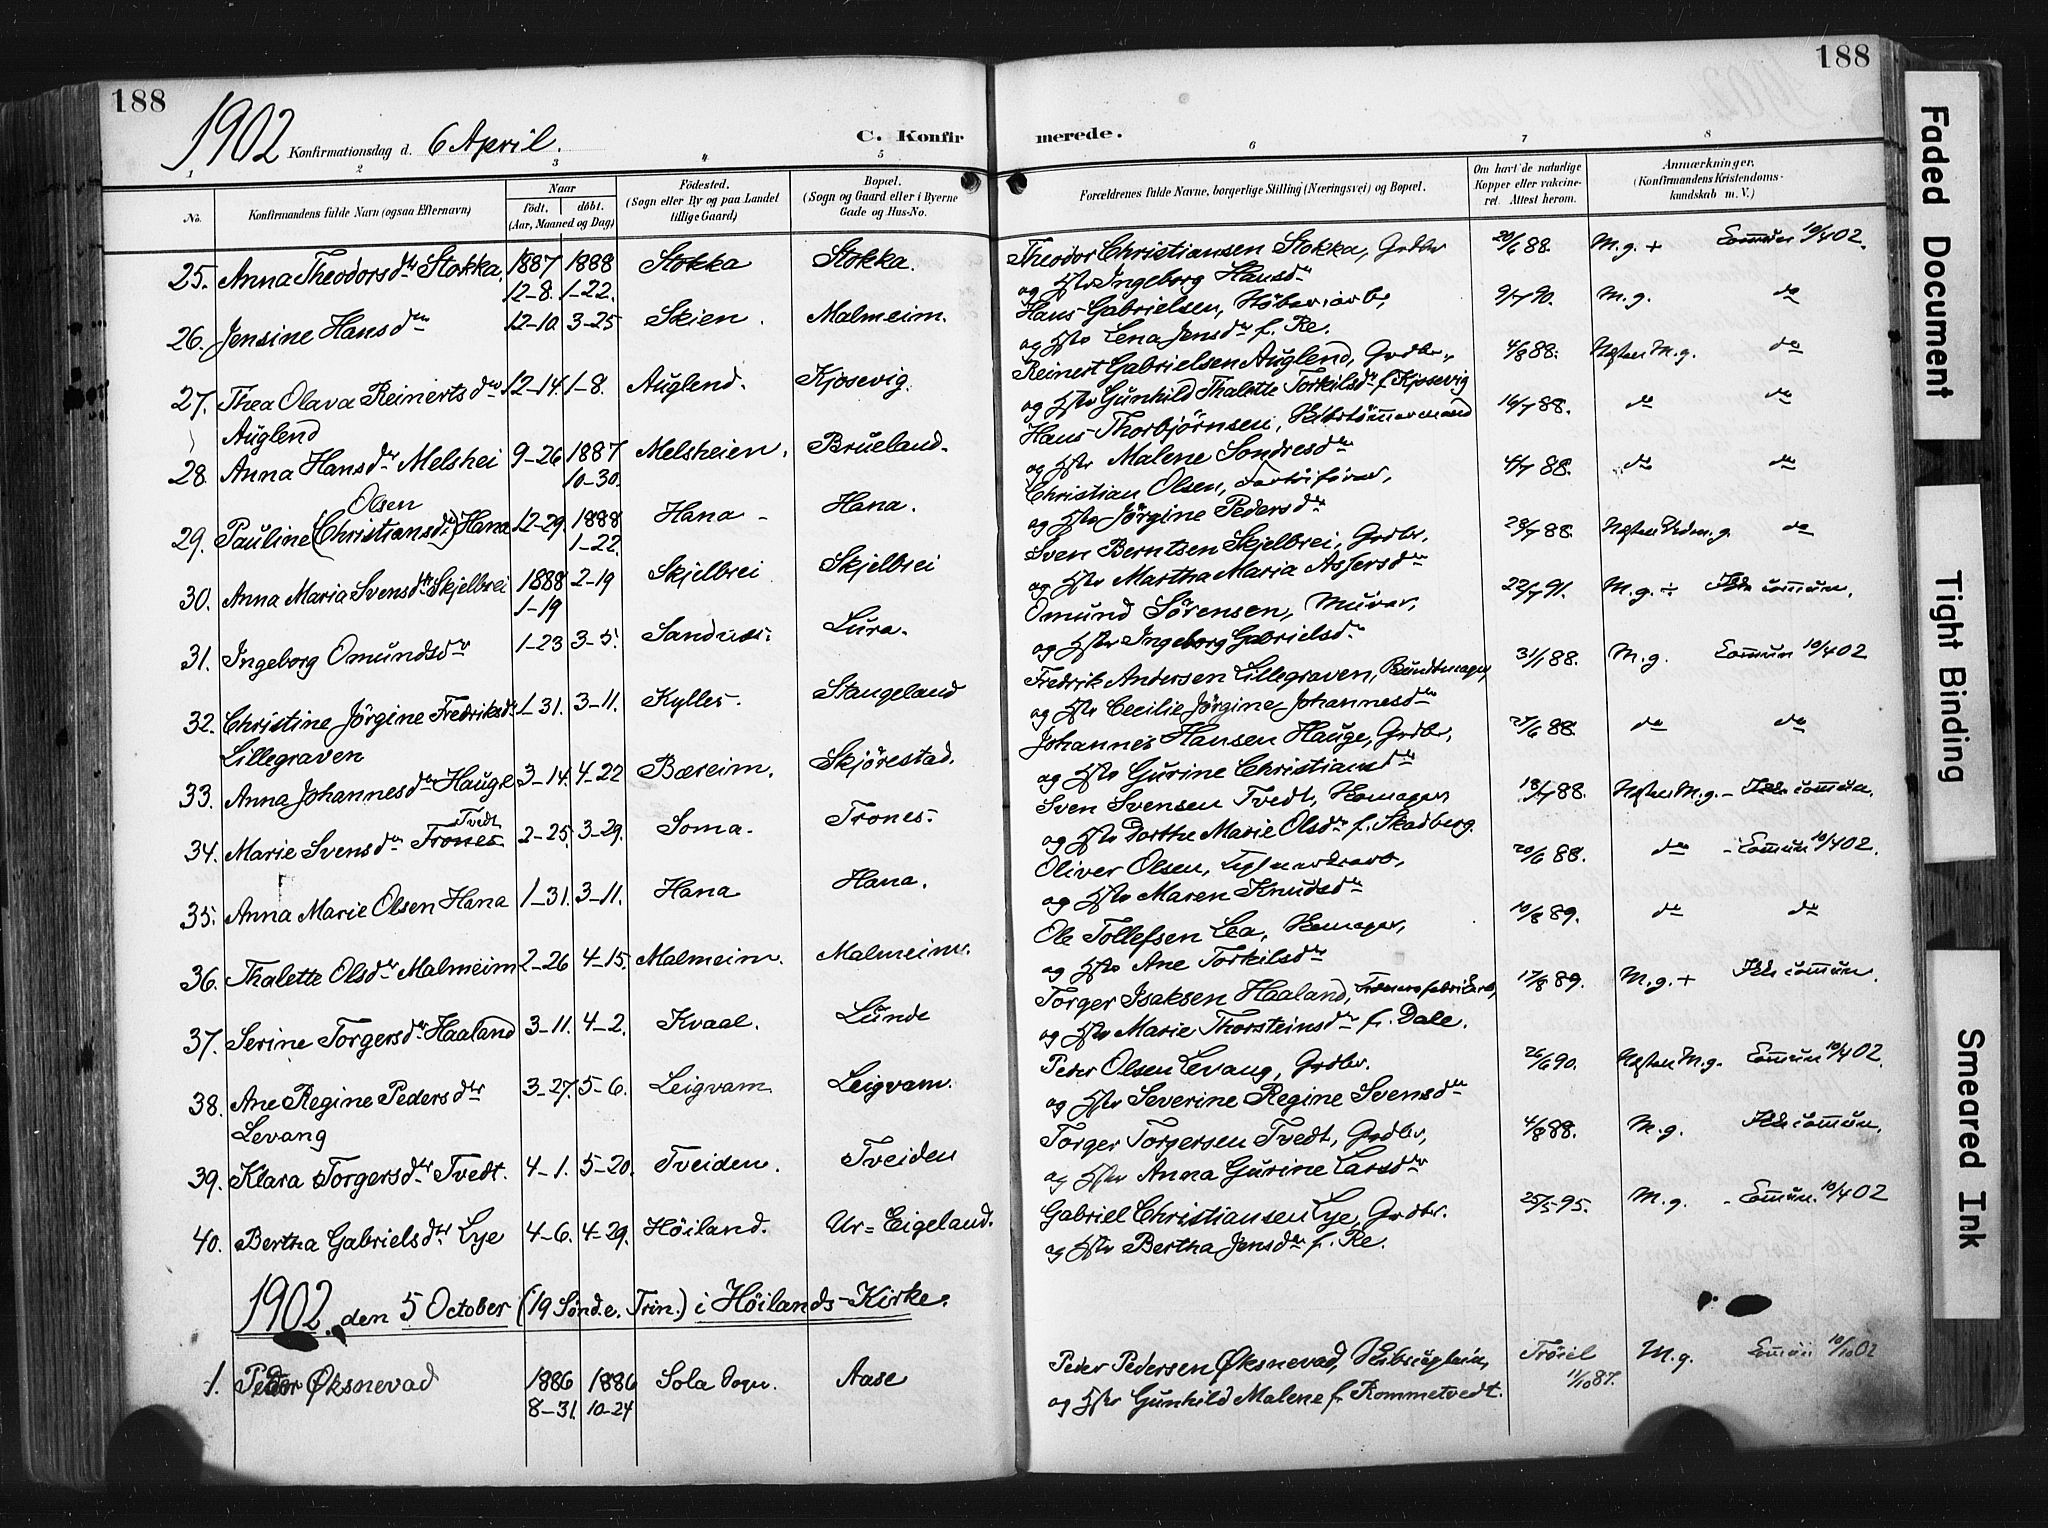 188
188
1902 Konfirmationsdag d. 6 April.
C. Konfirmerede.
1 2 3 4 5 6 7 8
No.
Konfirmandens fulde Navn (ogsaa Efternavn)
Naar
født. døbt.
(Aar, Maaned og Dag)
Födested.
(Sogn eller By og paa Landet
tillige Gaard)
Bopæl.
(Sogn og Gaard eller i Byerne
Gade og Hus-No.
Forældrenes fulde Navne, borgerlige Stilling (Næringsvei) og Bopæl.
Om havt de naturlige
Kopper eller vakcine-
ret. Attest herom.
Anmærkninger,
(Konfirmandens Kristendoms-
kundskab m. V.)
25. Anna Theodorsdtr Stokka. 1887 1888 Stokka Stokka. Theodor Christiansen Stokka, Grdbr 20/6 88. M.g. + Commun 10/4 02.
12-8. 1-22. og Hstr Ingeborg Hansdtr
26. Jensine Hansdtr 12-10. 3-25 Skien. Malmeim. Hans Gabrielsen, 9/7 90. M.g. do
og Hstr Lena Jensdtr f. Re.
27. Thea Olava Reinertsdtr 12-14. 1-8. Auglend. Kjosevig. Reinert Gabrielsen Auglend, Grdbr., 4/8 88. Næsten M.g. do
Auglend og Hstr Gunhild Thalette Torkilsdtr f. Kjosevig
28. Anna Hansdtr Melshei 9-26 1887 Melsheien. Brueland. Hans Thorbjørnsen, 16/7 88. do do
10-30. og Hstr Malene Sondresdtr
29. Pauline (Christiansdtr) Olsen Hana 12-29. 1888 Hana Hana. Christian Olsen, 4/7 88. do do
1-22. og Hstr Jørgine Pedersdtr
30. Anna Maria Svensdtr Skjelbrei 1888 2-19 Skjelbrei Skjelbrei Sven Berntsen Skjelbrei, Grdbr. 28/7 88. Næsten M.g. do
1-19 og Hstr Martha Maria Assersdtr
31. Ingeborg Omundsdtr 1-23 3-5. Sandnes. Lura. Omund Sørensen, Murer, 22/7 91. M.g. ÷ Ikke commun.
og Hstr Ingeborg Gabrielsdtr
32. Christine Jørgine Fredriksdtr 1-31. 3-11. Kylles. Stangeland Fredrik Andersen Lillegraven, Bundtmager, 31/1 88. M.g. Commun 10/4 02
Lillegraven og Hstr Cecilie Jørgine Johannesdtr
33. Anna Johannesdtr Hauge 3-14. 4-22 Bæreim. Skjørestad. Johannes Hansen Hauge, Grdbr, 25/6 88. do do
og Hstr Gurine Christiansdtr
34. Marie Svensdtr Trones Tvedt 2-25. 3-29. Soma. Trones. Sven Svensen Tvedt, 18/7 88. Næsten M.g. - Ikke commun.
og Hstr Dorthe Marie Olsdtr f. Skadberg.
35. Anna Marie Olsen Hana 1-31. 3-11. Hana Hana. Oliver Olsen, 20/6 88. do - Commun 10/4 02.
og Hstr Maren Knudsdtr
36. Thalette Olsdtr Malmeim 2-26 4-15. Malmeim. Malmeim. Ole Tollefsen Lea, 10/8 89. do do
og Hstr Ane Torkilsdtr
37. Serine Torgersdtr Haaland 3-11. 4-2. Kvaal. Lunde Torger Isaksen Haaland, 17/8 89. M.g. + Ikke commun.
og Hstr Marie Thorsteinsdtr f. Dale.
38. Ane Regine Pedersdtr 3-27. 5-6. Leigvam Leigvam. Peder Olsen Levang, Grdbr. 26/6 90. Næsten M.g. Commun 10/4 02.
Levang og Hstr Severine Regine Svensdtr
39. Klara Torgersdtr Tvedt. 4-1. 5-20. Tveiden. Tveiden Torger Torgersen Tvedt, Grdbr, 4/8 88. M.g. Ikke commun.
og Hstr Anna Gurine Larsdtr
40. Bertha Gabrielsdtr Lye 4-6. 4-29. Høiland. Ur-Eigeland. Gabriel Christiansen Lye, Grdbr. 25/5-95. M.g. - Commun. 10/4 02
og Hstr Bertha Jensdtr f. Re.
1902. den 5 October (19 Sønd. e. Trin.) i Høilands-Kirke.
1. Peder Øksnevad 1886 1886 Sola Sogn. Aase Peder Pedersen Øksnevad, Trøiel M.g. Commun 10/10 02
8-31. 10-24 og Hstr Gunhild Malene f. Rommetvedt. 11/10 87.
Faded Document
Tight Binding
Smeared Ink